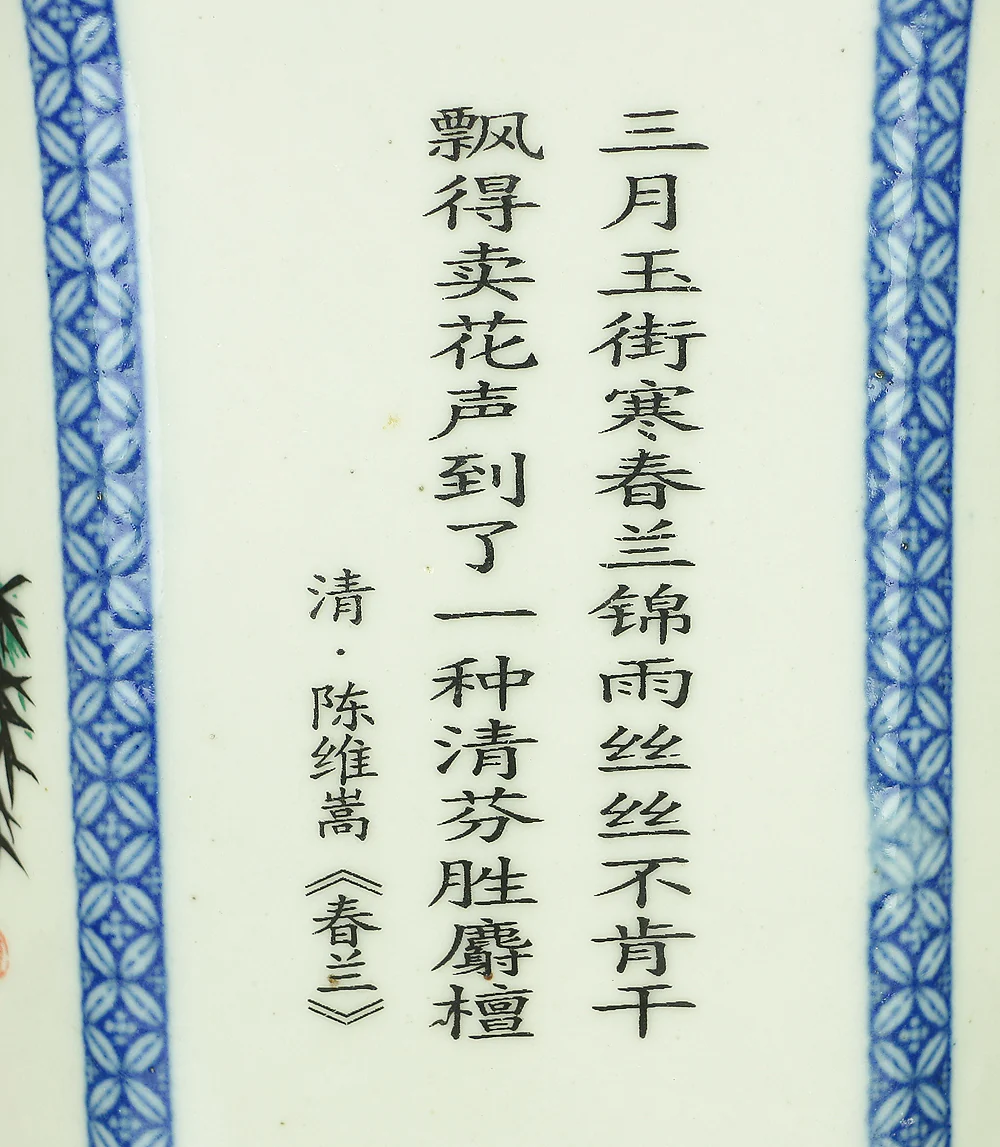 三月玉街寒春兰锦雨丝丝不肯干
飘得卖花声到了一种清芬胜麝檀
清·陈维嵩《春兰》